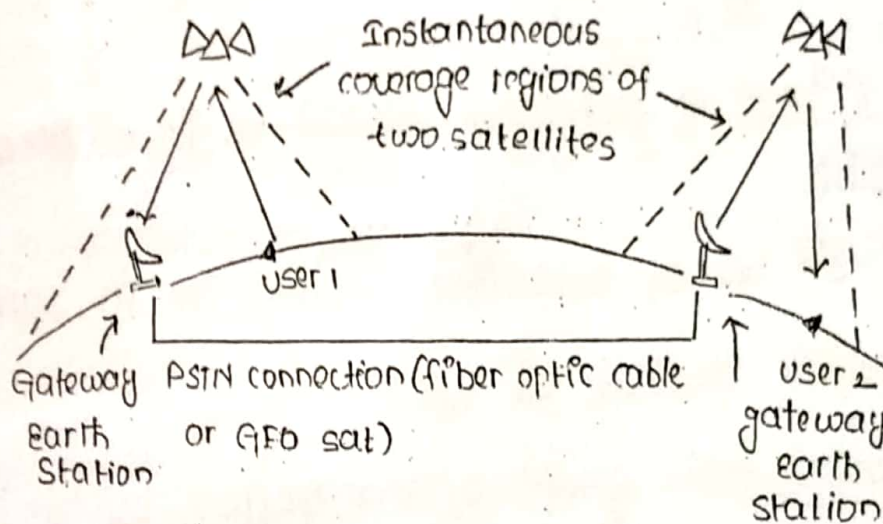 Instantaneous
coverage regions of
two satellites
user 1
Gateway
earth
Station
PSTN connection (fiber optic cable
or GEO sat)
user 2
gateway
earth
station